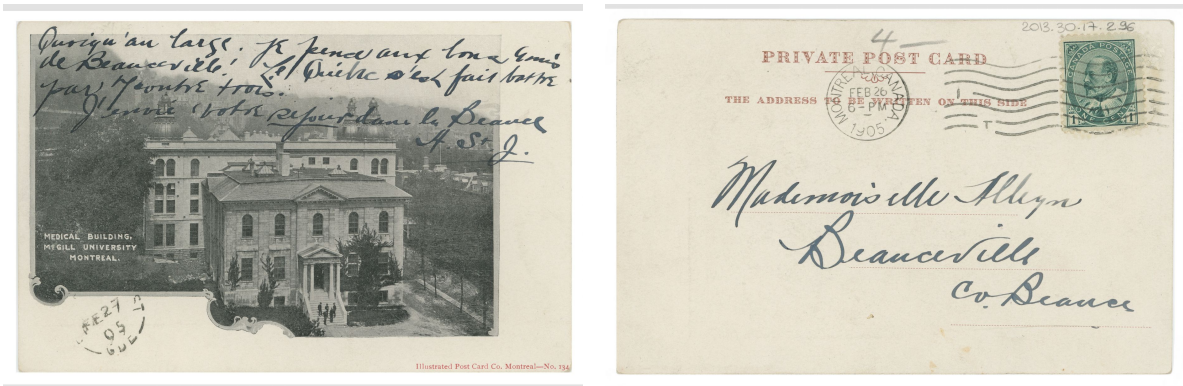 Quoiqu'au large. Je pense aux bons Amis
de Beauceville! Le Québec s'est fait battre
par Montre trois.
J'envie votre séjour dans la Beauce
A. St. J.
MEDICAL BUILDING,
McGILL UNIVERSITY
MONTREAL.
FE 27
05
QUE
Illustrated Post Card Co. Montreal—No. 134
2013.30.17.296
4—
PRIVATE POST CARD
THE ADDRESS TO BE WRITTEN ON THIS SIDE
MONTREAL CANADA
FEB 26
6-PM
1905
CANADA POSTAGE
1 ONE CENT 1
Mademoiselle Alleyn
Beauceville
Co. Beauce